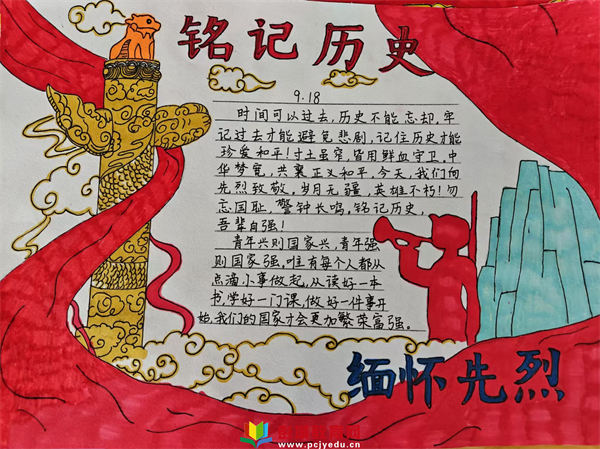 铭记历史
9.18
时间可以过去,历史不能忘却,牢
记过去才能避免悲剧,记住历史才能
珍爱和平!寸土虽窄,皆用鲜血守卫,中
华梦宽,共襄正义和平,今天,我们向
先烈致敬,岁月无疆,英雄不朽!勿
忘国耻,警钟长鸣,铭记历史,
吾辈自强!
青年兴则国家兴,青年强
则国家强,唯有每个人都从
点滴小事做起,从读好一本
书,学好一门课,做好一件事开
始,我们的国家才会更加繁荣富强。
缅怀先烈
www.pcjyedu.cn